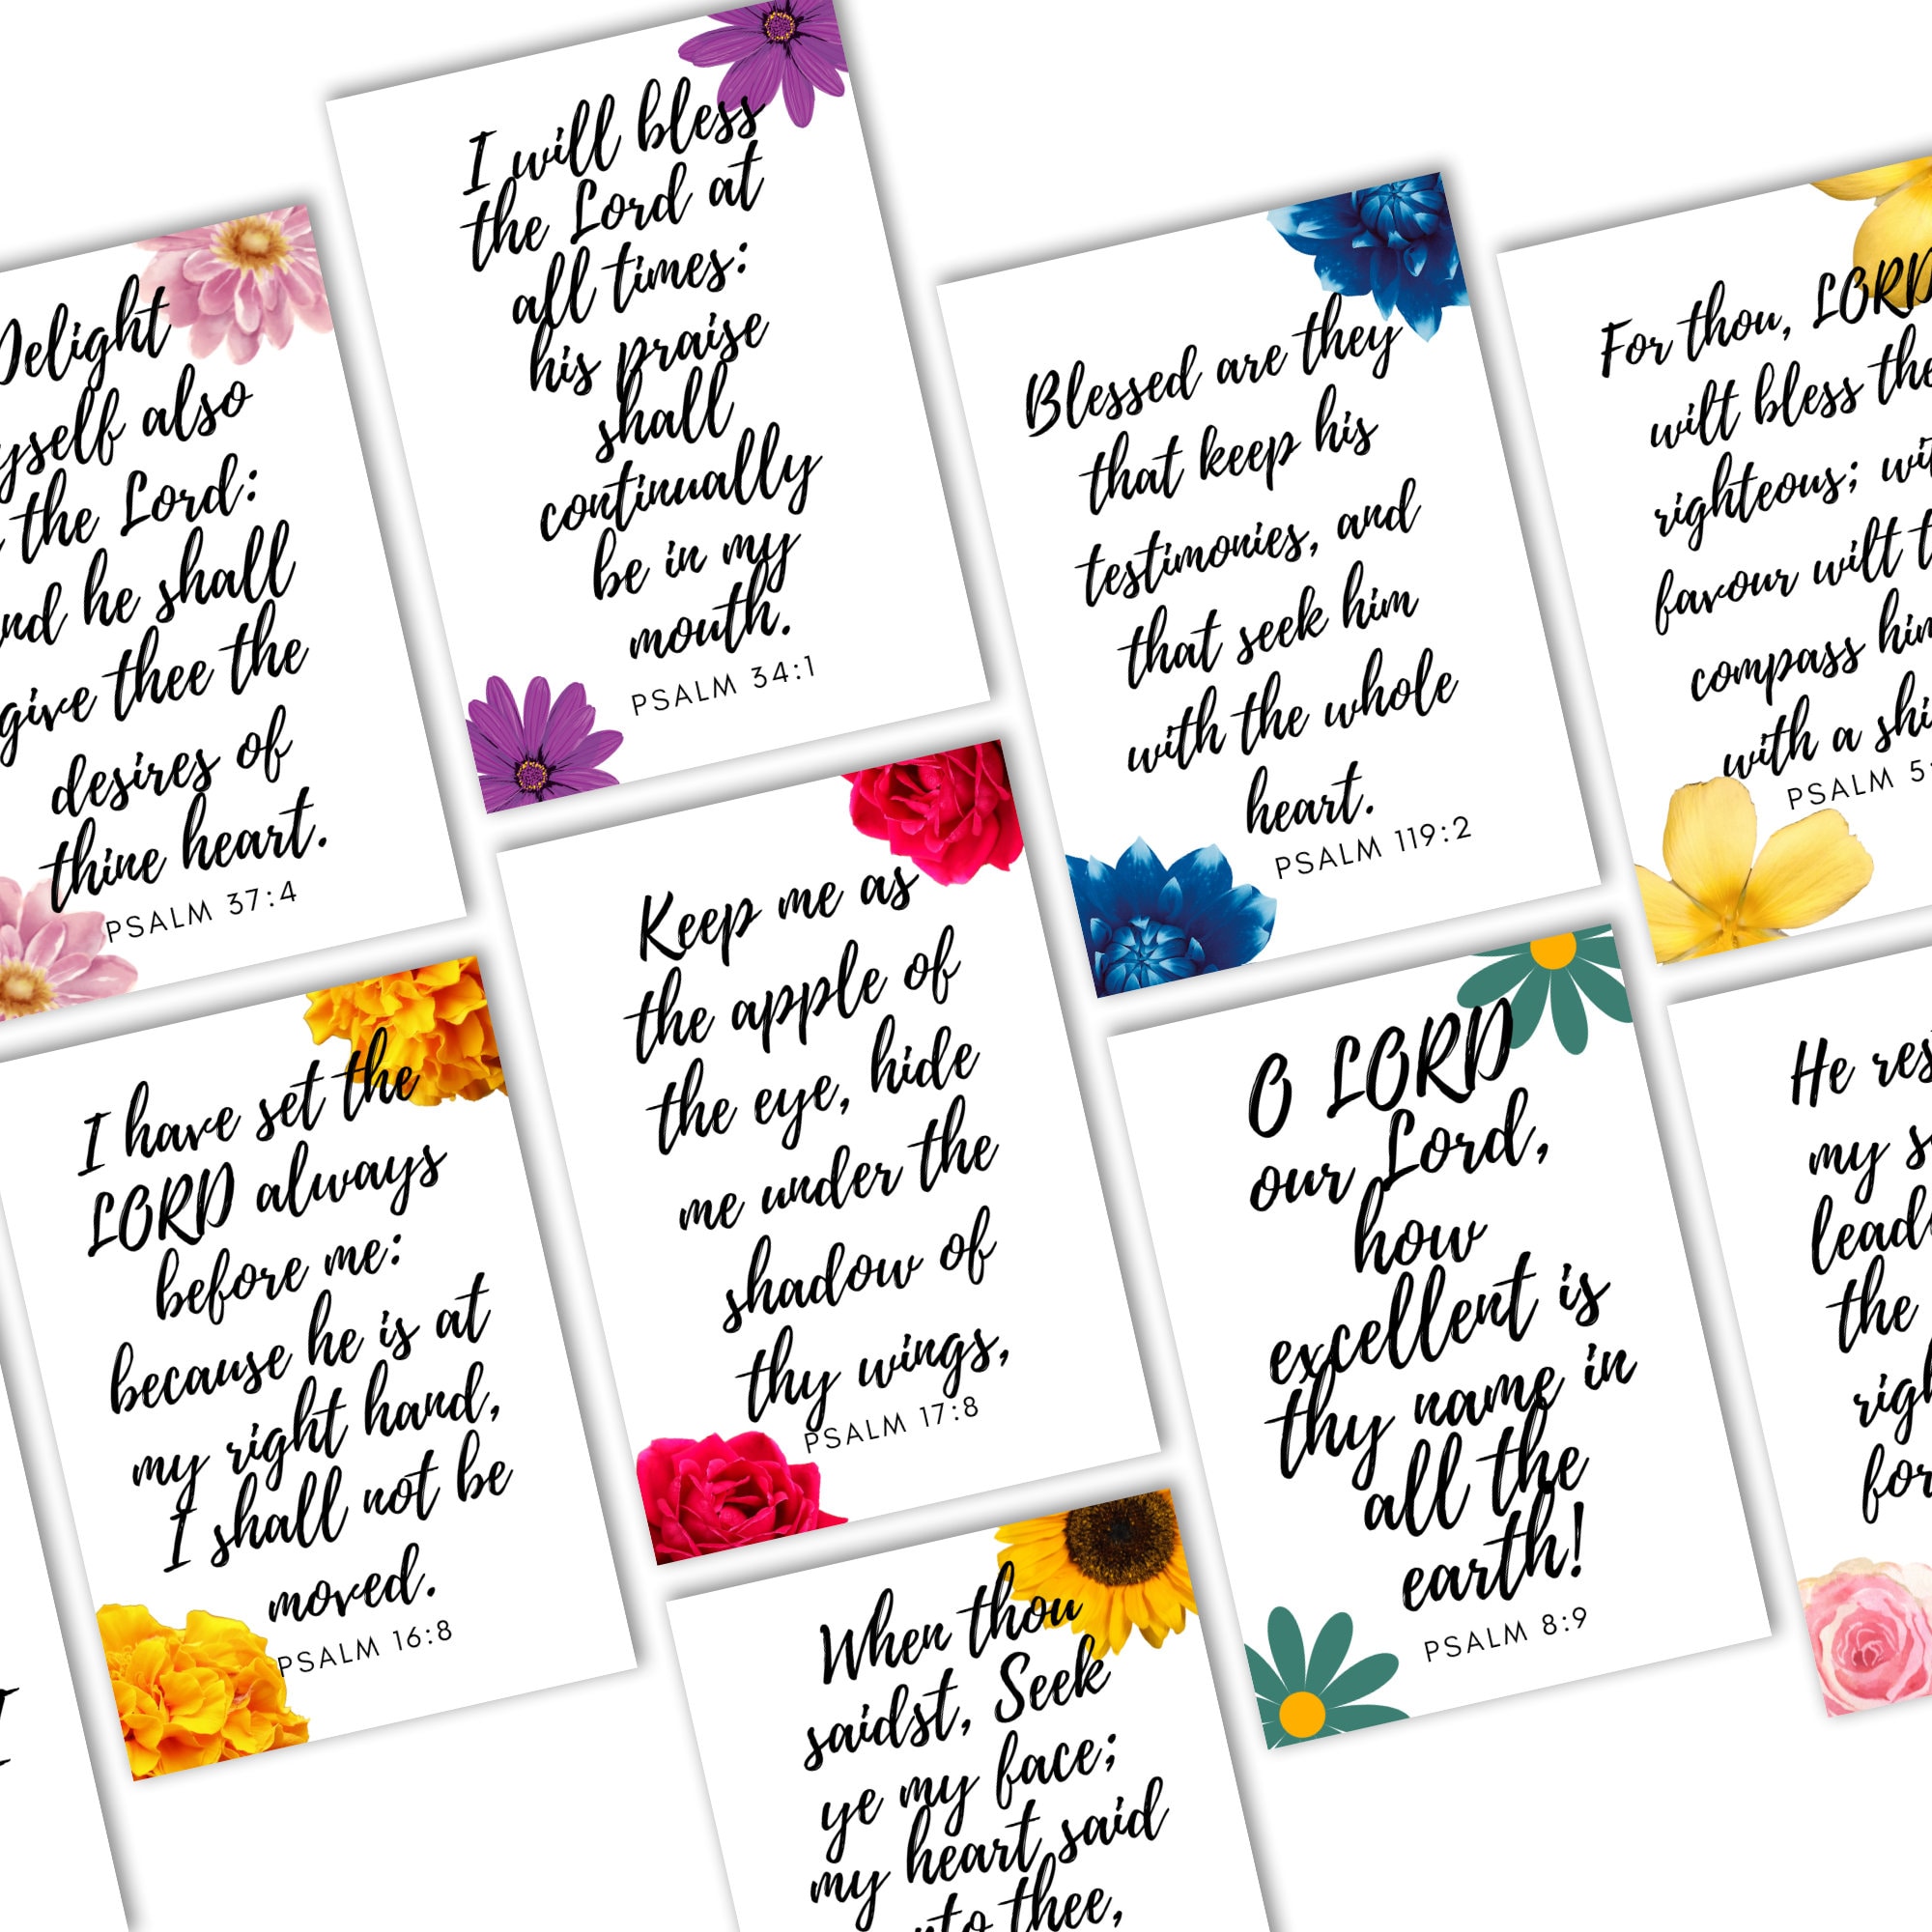 I will bless
the Lord at
all times:
his praise
shall
continually
be in my
mouth.
PSALM 34:1
Delight
also
the Lord:
he shall
give thee the
desires of
thine heart.
PSALM 37:4
Blessed are they
that keep his
testimonies, and
that seek him
with the whole
heart.
PSALM 119:2
For thou, LORD
wilt bless the
righteous;
favour wilt
compass
with a
PSALM 5:
I have set the
LORD always
before me:
because he is at
my right hand,
I shall not be
moved.
PSALM 16:8
Keep me as
the apple of
the eye, hide
me under the
shadow of
thy wings,
PSALM 17:8
O LORD
our Lord,
how
excellent is
thy name in
all the
earth!
PSALM 8:9
He
my
the
When thou
saidst, Seek
ye my face;
my heart said
thee,